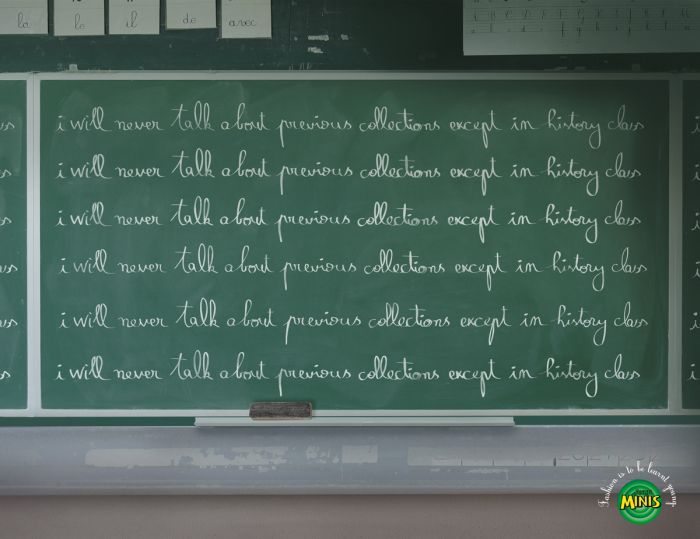 la
le
il
de
avec
i will never talk about previous collections except in history class
i will never talk about previous collections except in history class
i will never talk about previous collections except in history class
i will never talk about previous collections except in history class
i will never talk about previous collections except in history class
i will never talk about previous collections except in history class
Fashion is to be learnt young
MINIS